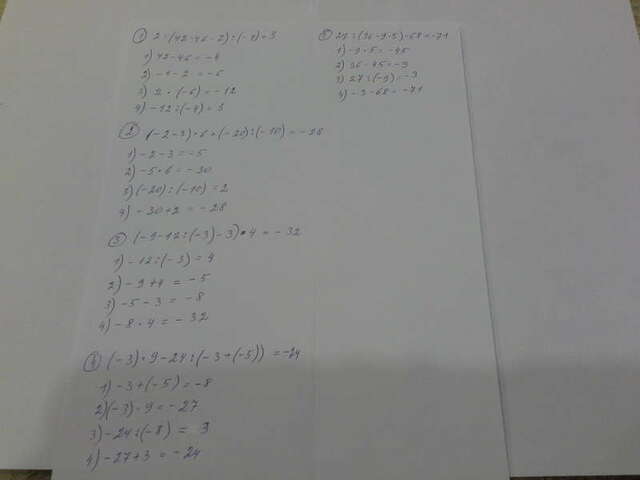 ① 2·(42-46-2):(-4)=3
1) 42-46=-4
2) -4-2=-6
3) 2·(-6)=-12
4) -12:(-4)=3
② (-2-3)·6+(-20):(-10)=-28
1) -2-3=-5
2) -5·6=-30
3) (-20):(-10)=2
4) -30+2=-28
③ (-9-12:(-3)-3)·4=-32
1) -12:(-3)=4
2) -9+4=-5
3) -5-3=-8
4) -8·4=-32
④ (-3)·9-24:(-3+(-5))=-24
1) -3+(-5)=-8
2) (-3)·9=-27
3) -24:(-8)=3
4) -27+3=-24
⑤ 27:(36-9·5)-68=-71
1) -9·5=-45
2) 36-45=-9
3) 27:(-9)=-3
4) -3-68=-71